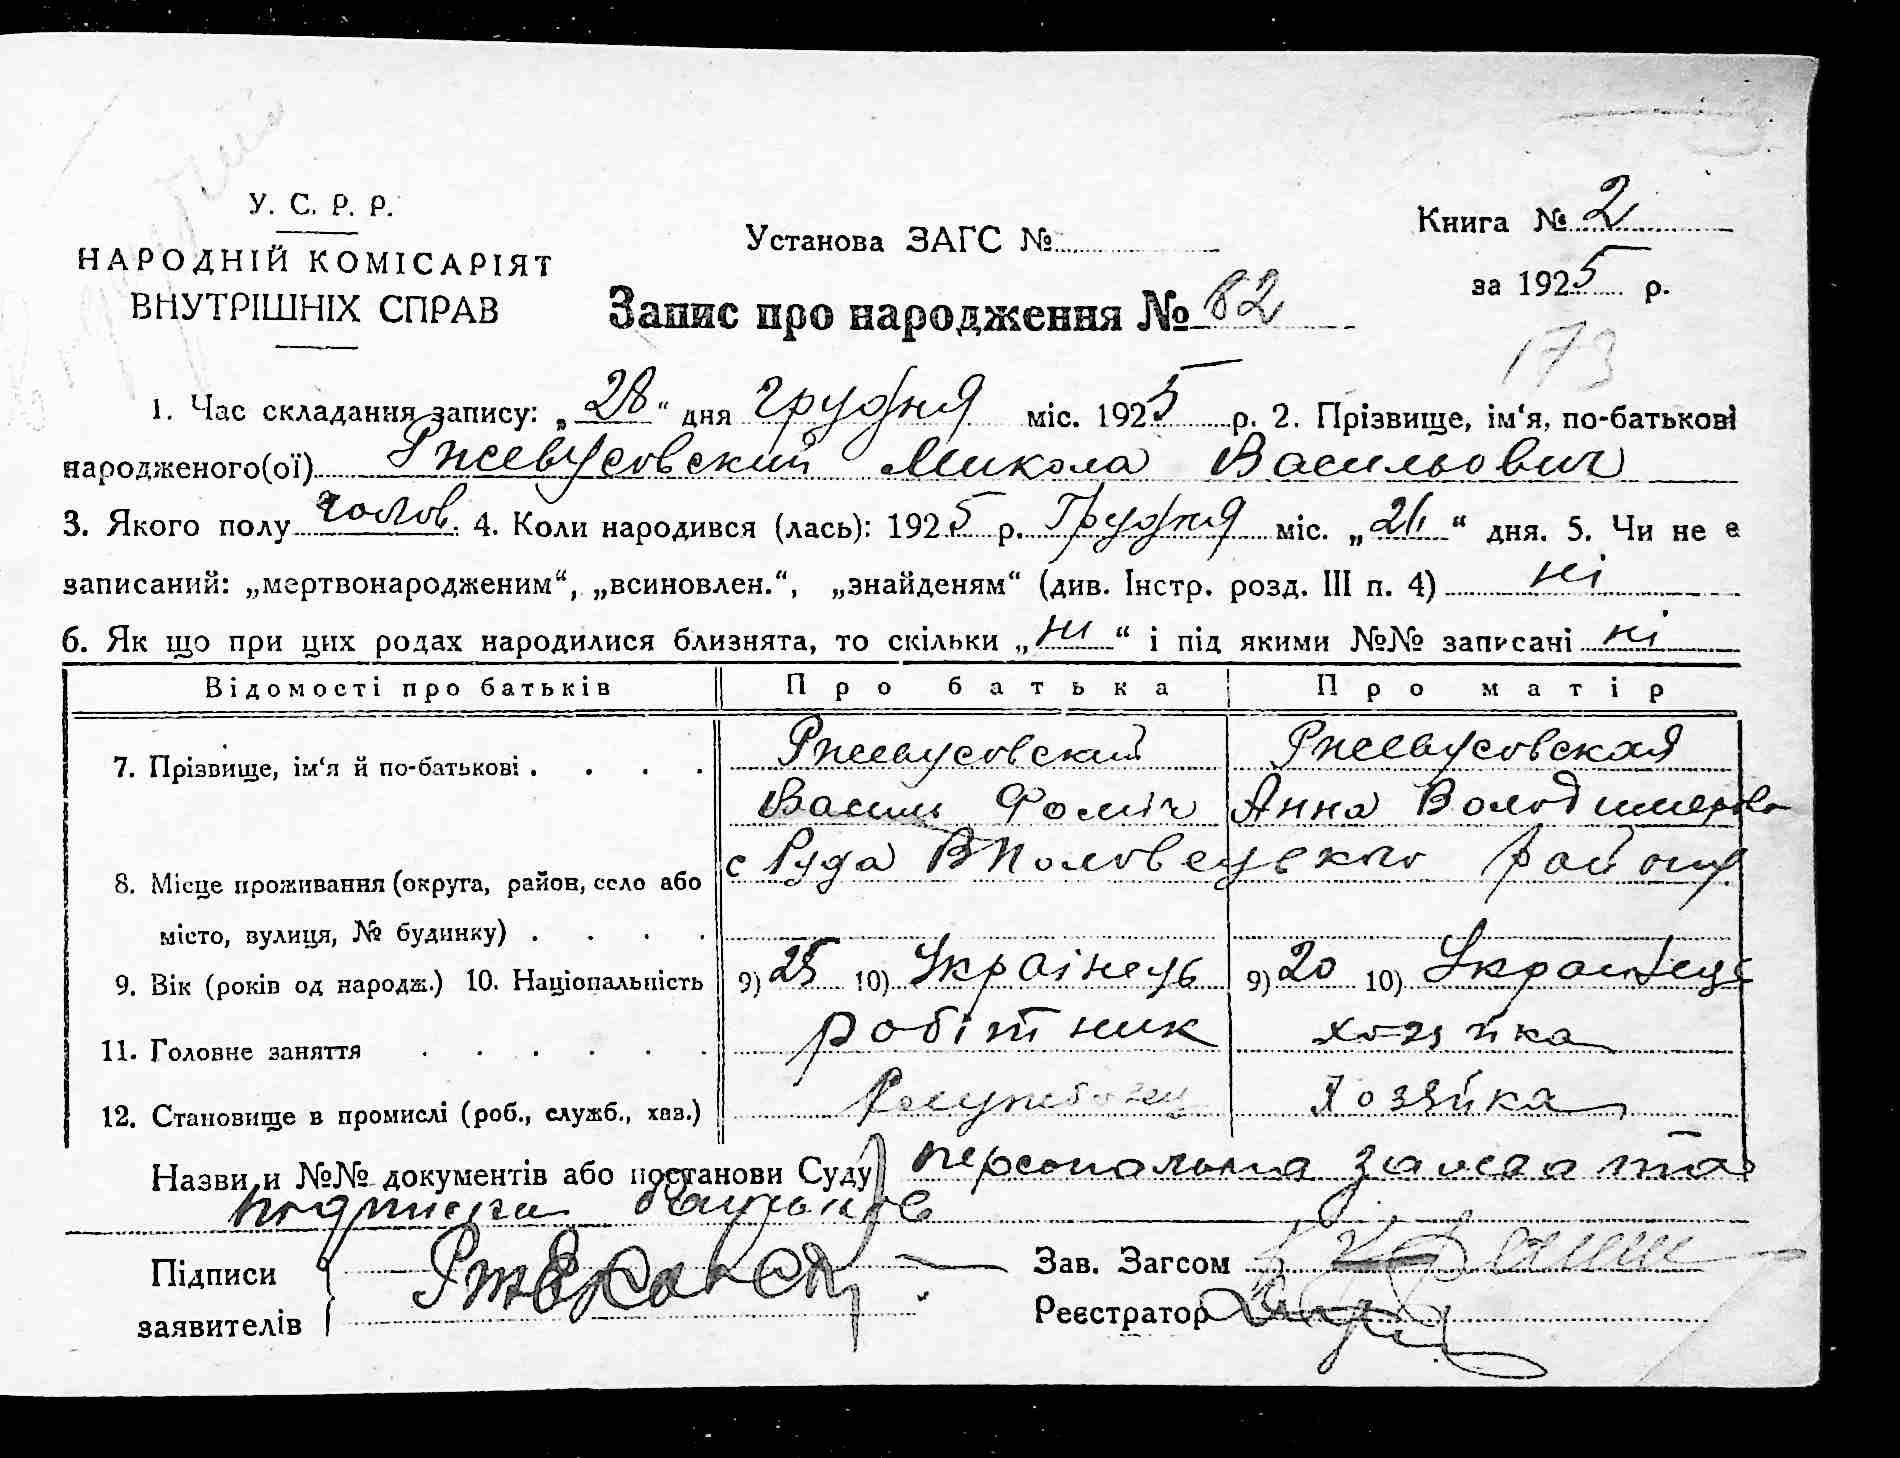 У. С. Р. Р.
НАРОДНІЙ КОМІСАРІЯТ
ВНУТРІШНІХ СПРАВ
Установа ЗАГС №
Книга № 2
за 1925 р.
Запис про народження № 82
173
1. Час складання запису: „28“ дня грудня міс. 1925 р. 2. Прізвище, ім‘я, по-батькові
народженого(ої) Ржевусовский Микола Васильович
3. Якого полу чолов. 4. Коли народився (лась): 1925 р. Грудня міс. „21“ дня. 5. Чи не є
записаний: „мертвонародженим“, „всиновлен.“, „знайденям“ (див. Інстр. розд. III п. 4) ні
6. Як що при цих родах народилися близнята, то скільки „ні“ і під якими №№ записані ні
Відомості про батьків Про батька Про матір
7. Прізвище, ім‘я й по-батькові . . . . Ржевусовский Ржевусовская
Василь Фоміч Анна Володимерова
8. Місце проживання (округа, район, село або с Руда ВПоловецького району
місто, вулиця, № будинку) . . . .
9. Вік (років од народж.) 10. Національність 9) 25 10) Українець 9) 20 10) Українець
11. Головне заняття . . . . . . робітник хозяйка
12. Становище в промислі (роб., служб., хаз.) Хозяйка
Назви и №№ документів або постанови Суду персональна заява та
подписи батьків
Підписи
заявителів
Зав. Загсом
Реєстратор